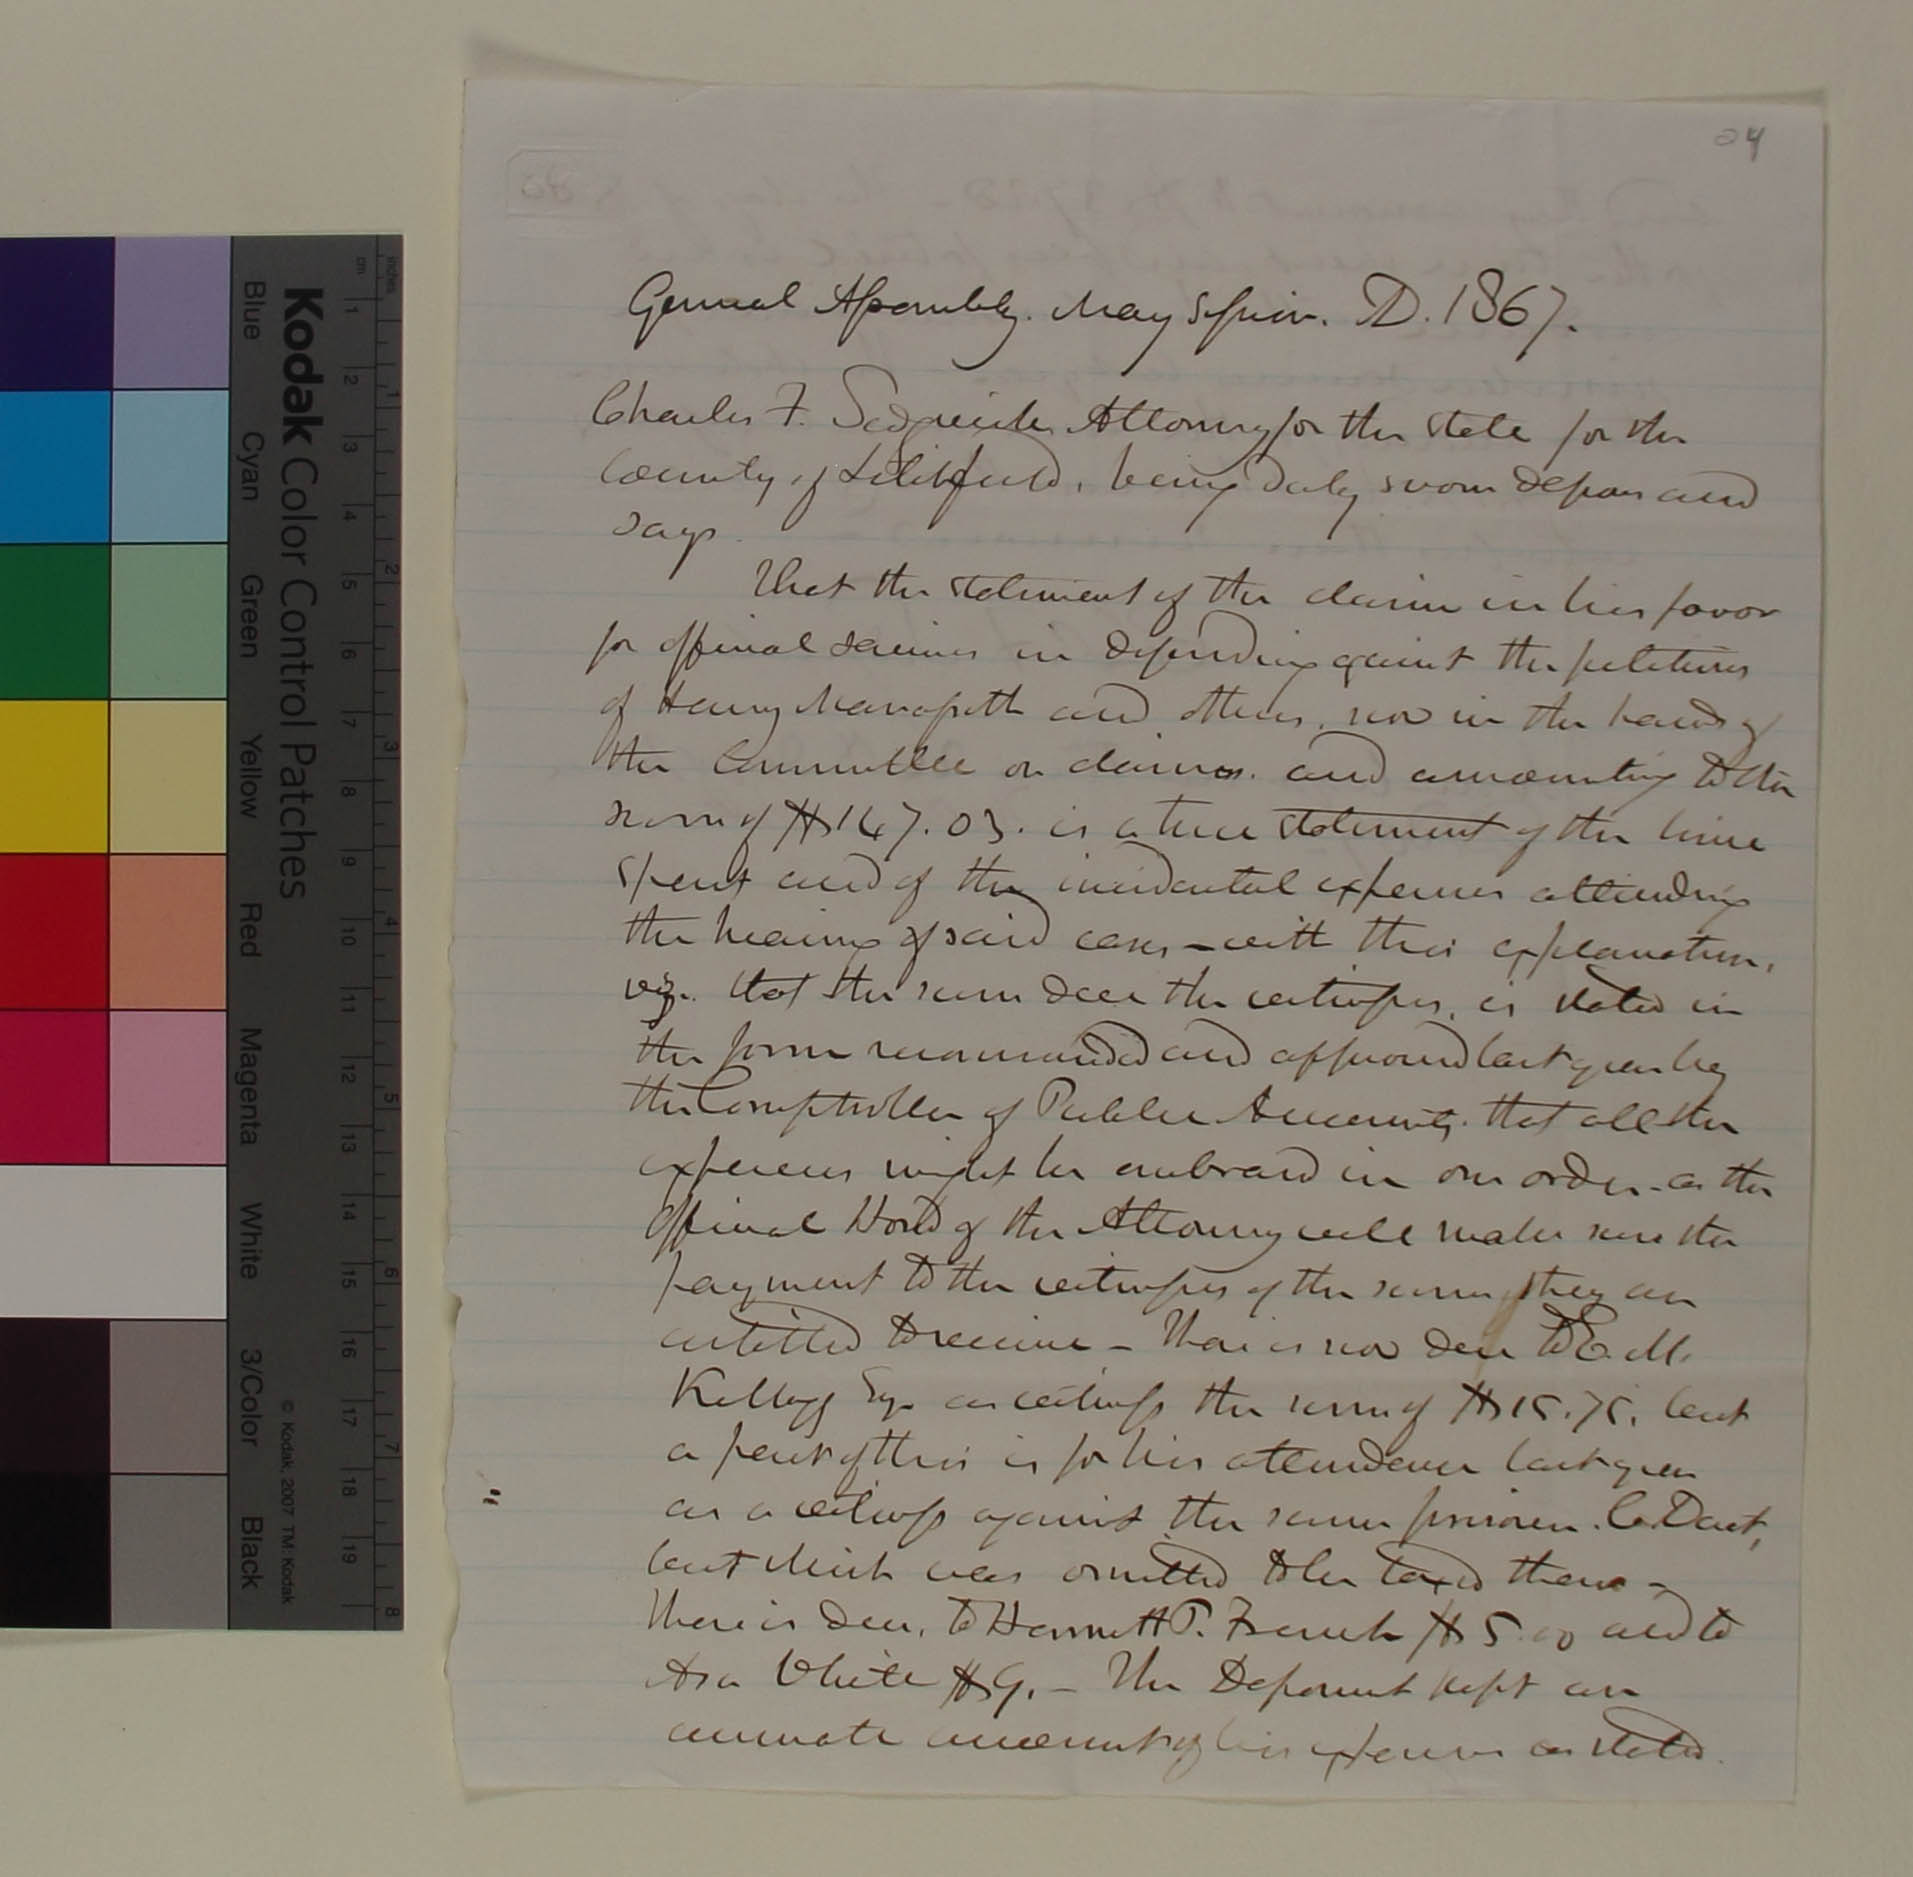 24
General Assembly. May Session. AD. 1867.
Charles F. Sedgwick Attorney for the state for the
County of Litchfield, being duly sworn deposes and
says.
That the statement of the claim in his favor
for official services in defending against the petitions
of Henry and others, now in the hands of
the Committee on claims. and amounting to the
sum of $147.03. is a true statement of the time
spent and of the incidental expenses attending
the hearing of said cases - with this explanation,
viz. that the sum due the witnesses, is stated in
the form recommended and approved last year by
the Comptroller of Public Accounts, that all the
expenses might be embraced in one order - as the
official bond of the Attorney will make sure the
payment to the witnesses of the sums they are
entitled to receive - There is now due to E. M.
Kellogg Esq. as witness the sum of $15.75. but
a part of this is for his attendance last year
as a witness against the same prisoner. C. Dart,
but which was omitted to be taxed then -
There is due, to Harriett P. French $5.00 and to
Asa White $9. - The Deponent kept an
accurate account of his expenses as stated.
Kodak Color Control Patches
Blue Cyan Green Yellow Red Magenta White 3/Color Black
© Kodak, 2007 TM: Kodak
inches 1 2 3 4 5 6 7 8
cm 1 2 3 4 5 6 7 8 9 10 11 12 13 14 15 16 17 18 19